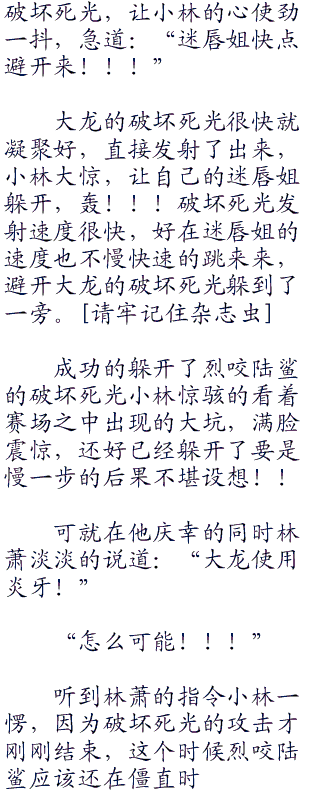 破坏死光，让小林的心使劲
一抖，急道：“迷唇姐快点
避开来！！！”
大龙的破坏死光很快就
凝聚好，直接发射了出来，
小林大惊，让自己的迷唇姐
躲开，轰！！！破坏死光发
射速度很快，好在迷唇姐的
速度也不慢快速的跳来来，
避开大龙的破坏死光躲到了
一旁。[请牢记住杂志虫]
成功的躲开了烈咬陆鲨
的破坏死光小林惊骇的看着
赛场之中出现的大坑，满脸
震惊，还好已经躲开了要是
慢一步的后果不堪设想！！
可就在他庆幸的同时林
萧淡淡的说道：“大龙使用
炎牙！”
“怎么可能！！！”
听到林萧的指令小林一
愣，因为破坏死光的攻击才
刚刚结束，这个时候烈咬陆
鲨应该还在僵直时